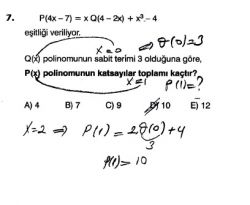 7. P(4x – 7) = x Q(4 – 2x) + x³ – 4
eşitliği veriliyor.
x=0 ⇒ Q(0)=3
Q(x) polinomunun sabit terimi 3 olduğuna göre,
P(x) polinomunun katsayılar toplamı kaçtır?
x=1 P(1)=?
A) 4 B) 7 C) 9 D) 10 E) 12
x=2 ⇒ P(1) = 2Q(0)+4
3
P(1)= 10